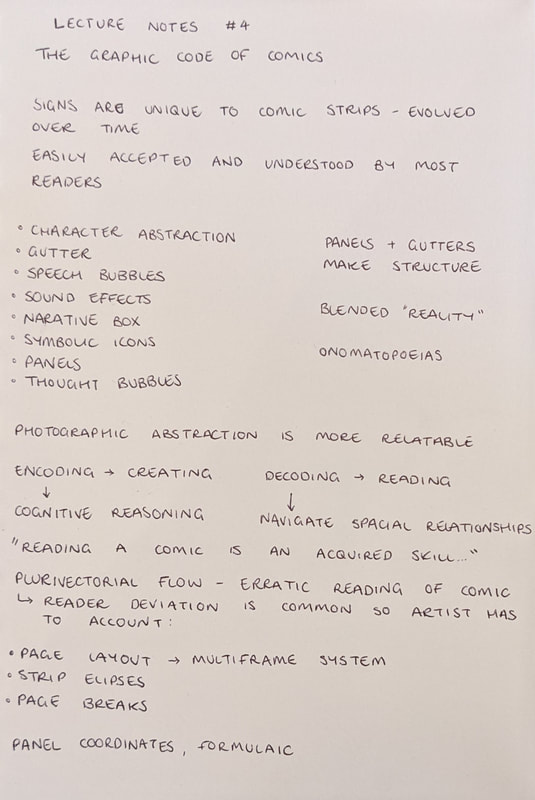 LECTURE NOTES #4
THE GRAPHIC CODE OF COMICS
SIGNS ARE UNIQUE TO COMIC STRIPS - EVOLVED
OVER TIME
EASILY ACCEPTED AND UNDERSTOOD BY MOST
READERS
• CHARACTER ABSTRACTION
• GUTTER
• SPEECH BUBBLES
• SOUND EFFECTS
• NARATIVE BOX
• SYMBOLIC ICONS
• PANELS
• THOUGHT BUBBLES
PANELS + GUTTERS
MAKE STRUCTURE
BLENDED "REALITY"
ONOMATOPOEIAS
PHOTOGRAPHIC ABSTRACTION IS MORE RELATABLE
ENCODING → CREATING
↓
COGNITIVE REASONING
DECODING → READING
↓
NAVIGATE SPACIAL RELATIONSHIPS
"READING A COMIC IS AN ACQUIRED SKILL..."
PLURIVECTORIAL FLOW - ERRATIC READING OF COMIC
↳ READER DEVIATION IS COMMON SO ARTIST HAS
TO ACCOUNT:
• PAGE LAYOUT → MULTIFRAME SYSTEM
• STRIP ELIPSES
• PAGE BREAKS
PANEL COORDINATES, FORMULAIC